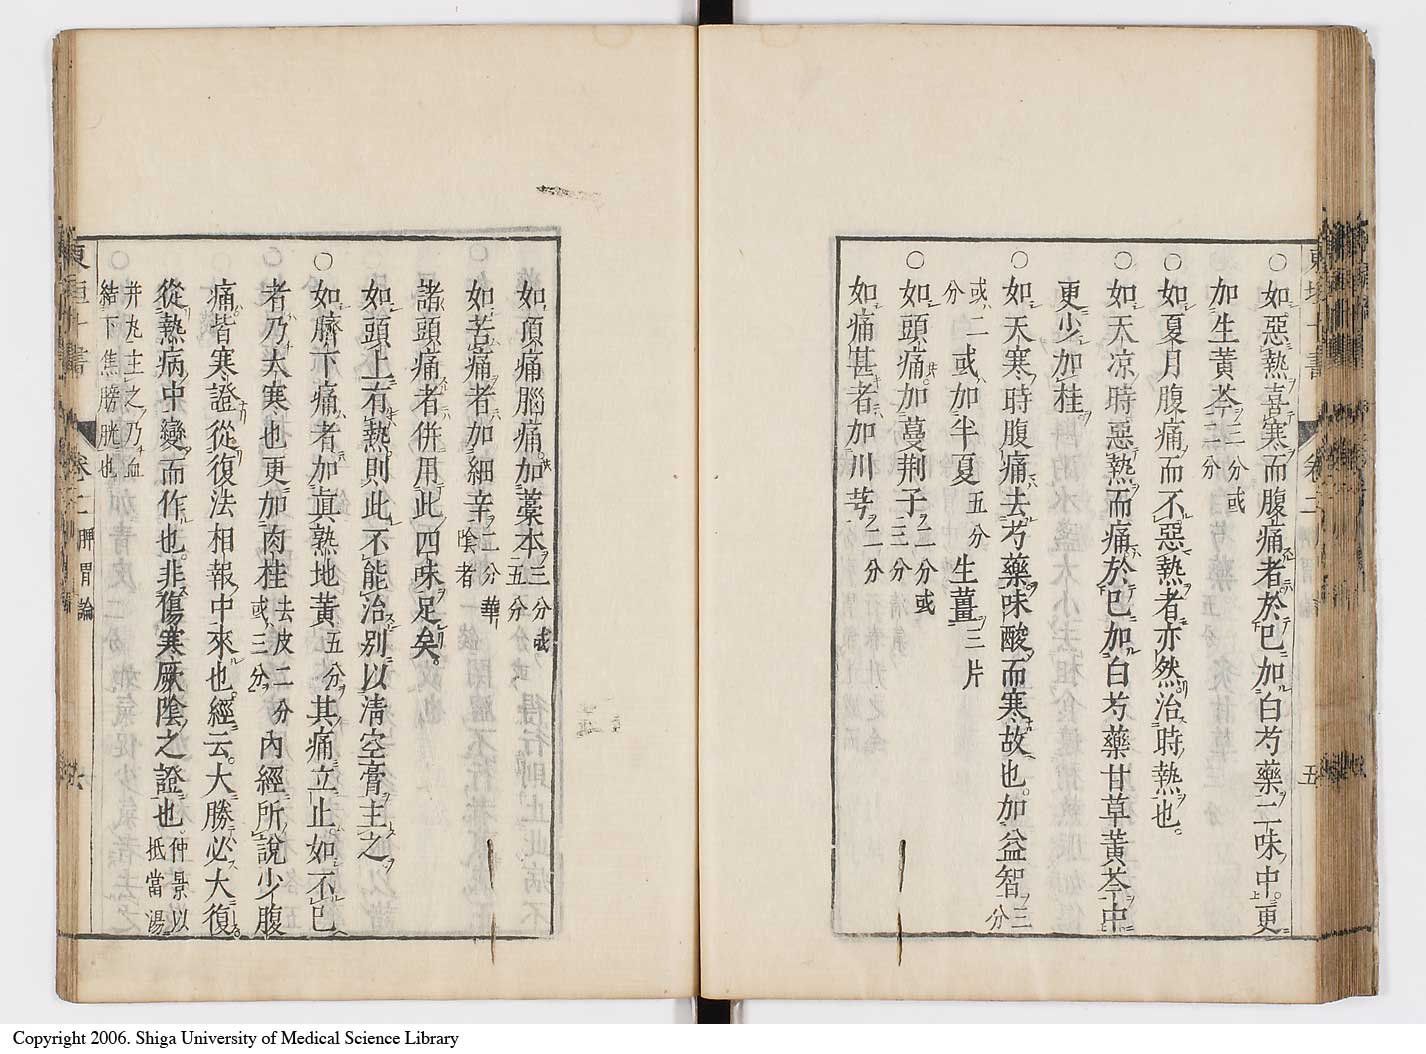 東垣十書 卷二 脾胃論 五
○如惡熱喜寒而腹痛者於已加白芍藥二味中更
加生黃芩三分或二分
○如夏月腹痛而不惡熱者亦然治時熱也。
○如天凉時惡熱而痛於已加白芍藥甘草黃芩中
更少加桂
○如天寒時腹痛去芍藥味酸而寒故也。加益智三分
或二分或加半夏五分生薑三片
○如頭痛加蔓荆子二分或三分
如痛甚者加川芎二分
如頂痛腦痛。加藁本三分或五分
如苦痛者加細辛二分華陰者
諸頭痛者併用此四味足矣。
如頭上有熱則此不能治別以清空膏主之
○如臍下痛者加眞熟地黃五分其痛立止。如不已
者乃大寒也更加肉桂去皮二分或三分內經所說少腹
痛皆寒證從復法相報中來也。經云。大勝必大復。
從熱病中變而作也。非傷寒厥陰之證也。仲景以抵當湯
并丸主之乃血結下焦膀胱也
東垣十書 卷二 脾胃論 六
Copyright 2006. Shiga University of Medical Science Library